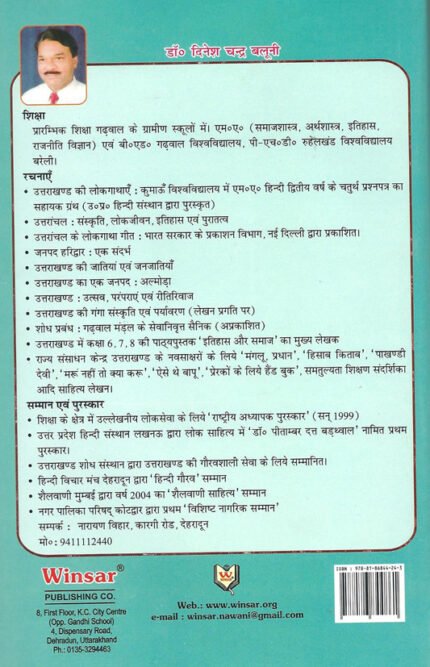 डॉ० दिनेश चन्द्र बलूनी
शिक्षा
प्रारम्भिक शिक्षा गढ़वाल के ग्रामीण स्कूलों में। एम०ए० (समाजशास्त्र, अर्थशास्त्र, इतिहास,
राजनीति विज्ञान) एवं बी०एड० गढ़वाल विश्वविद्यालय, पी-एच०डी० रुहेलखंड विश्वविद्यालय
बरेली।
रचनाएँ
• उत्तराखण्ड की लोकगाथाएँ : कुमाऊँ विश्वविद्यालय में एम०ए० हिन्दी द्वितीय वर्ष के चतुर्थ प्रश्नपत्र का
सहायक ग्रंथ (उ०प्र० हिन्दी संस्थान द्वारा पुरस्कृत)
• उत्तरांचल : संस्कृति, लोकजीवन, इतिहास एवं पुरातत्व
• उत्तरांचल के लोकगाथा गीत : भारत सरकार के प्रकाशन विभाग, नई दिल्ली द्वारा प्रकाशित।
• जनपद हरिद्वार : एक संदर्भ
• उत्तराखण्ड की जातियां एवं जनजातियाँ
• उत्तराखण्ड का एक जनपद : अल्मोड़ा
• उत्तराखण्ड : उत्सव, परंपराएं एवं रीतिरिवाज
• उत्तराखण्ड की गंगा संस्कृति एवं पर्यावरण (लेखन प्रगति पर)
• शोध प्रबंध : गढ़वाल मंडल के सेवानिवृत्त सैनिक (अप्रकाशित)
• उत्तराखण्ड में कक्षा 6, 7, 8 की पाठ्यपुस्तक 'इतिहास और समाज' का मुख्य लेखक
• राज्य संसाधन केन्द्र उत्तराखण्ड के नवसाक्षरों के लिये 'मंगलू, प्रधान', 'हिसाब किताब', 'पाखण्डी
देवी', 'मरू नहीं तो क्या करू', 'ऐसे थे बापू', 'प्रेरकों के लिये हैंड बुक', समतुल्यता शिक्षण संदर्शिका
आदि साहित्य लेखन।
सम्मान एवं पुरस्कार
• शिक्षा के क्षेत्र में उल्लेखनीय लोकसेवा के लिये 'राष्ट्रीय अध्यापक पुरस्कार' (सन् 1999)
• उत्तर प्रदेश हिन्दी संस्थान लखनऊ द्वारा लोक साहित्य में 'डॉ० पीताम्बर दत्त बड़थ्वाल' नामित प्रथम
पुरस्कार।
• उत्तराखण्ड शोध संस्थान द्वारा उत्तराखण्ड की गौरवशाली सेवा के लिये सम्मानित।
• हिन्दी विचार मंच देहरादून द्वारा 'हिन्दी गौरव' सम्मान
• शैलवाणी मुम्बई द्वारा वर्ष 2004 का 'शैलवाणी साहित्य' सम्मान
• नगर पालिका परिषद् कोटद्वार द्वारा प्रथम 'विशिष्ट नागरिक सम्मान'
सम्पर्क : नारायण विहार, कारगी रोड, देहरादून
मो०: 9411112440
Winsar®
PUBLISHING CO.
8, First Floor, K.C. City Centre
(Opp. Gandhi School)
4, Dispensary Road,
Dehradun, Uttarakhand
Ph.: 0135-3294463
W
Web.: www.winsar.org
e-mail : winsar.nawani@gmail.com
ISBN : 978-81-86844-24-3